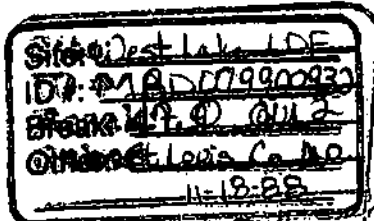 Site: West Lake LDF
ID #: MOD079900932
Break: 17.0 OU 2
Other: St Louis Co MO
11-18-88